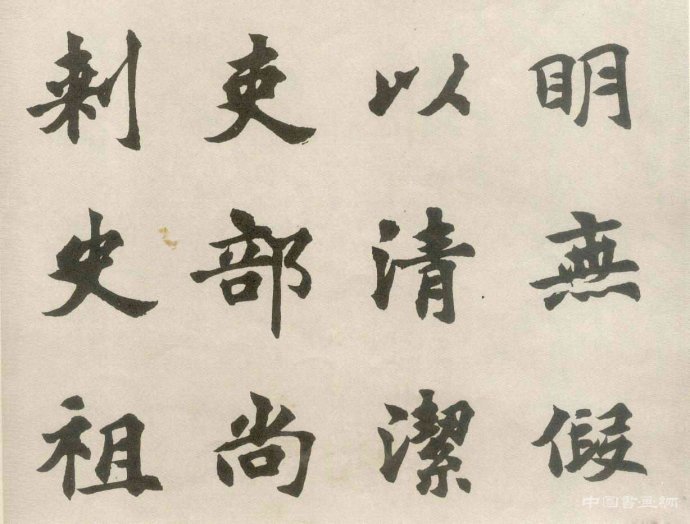 明無假
以清潔
吏部尚
刺史祖
中国书画网